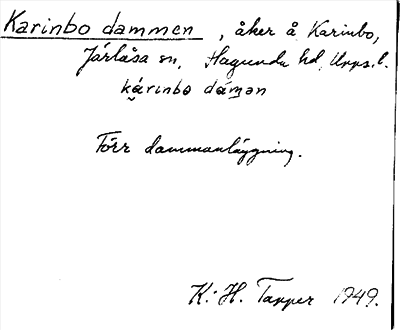 Karinbo dammen, åker å Karinbo,
Järlåsa sn, Hagunda hd, Upps. l.
kárinbo dáman
Förr dammanläggning.
K.-H. Tapper 1949.